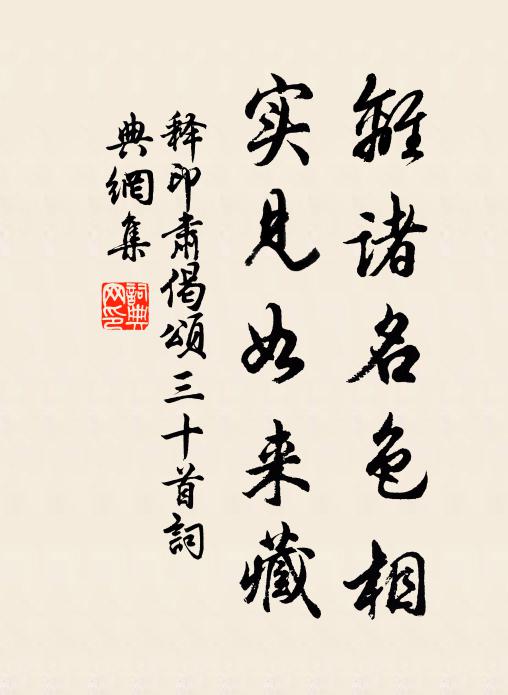 離諸名色相
实見如来藏
释印肃偈頌三十首詞
典網集
詞典网印